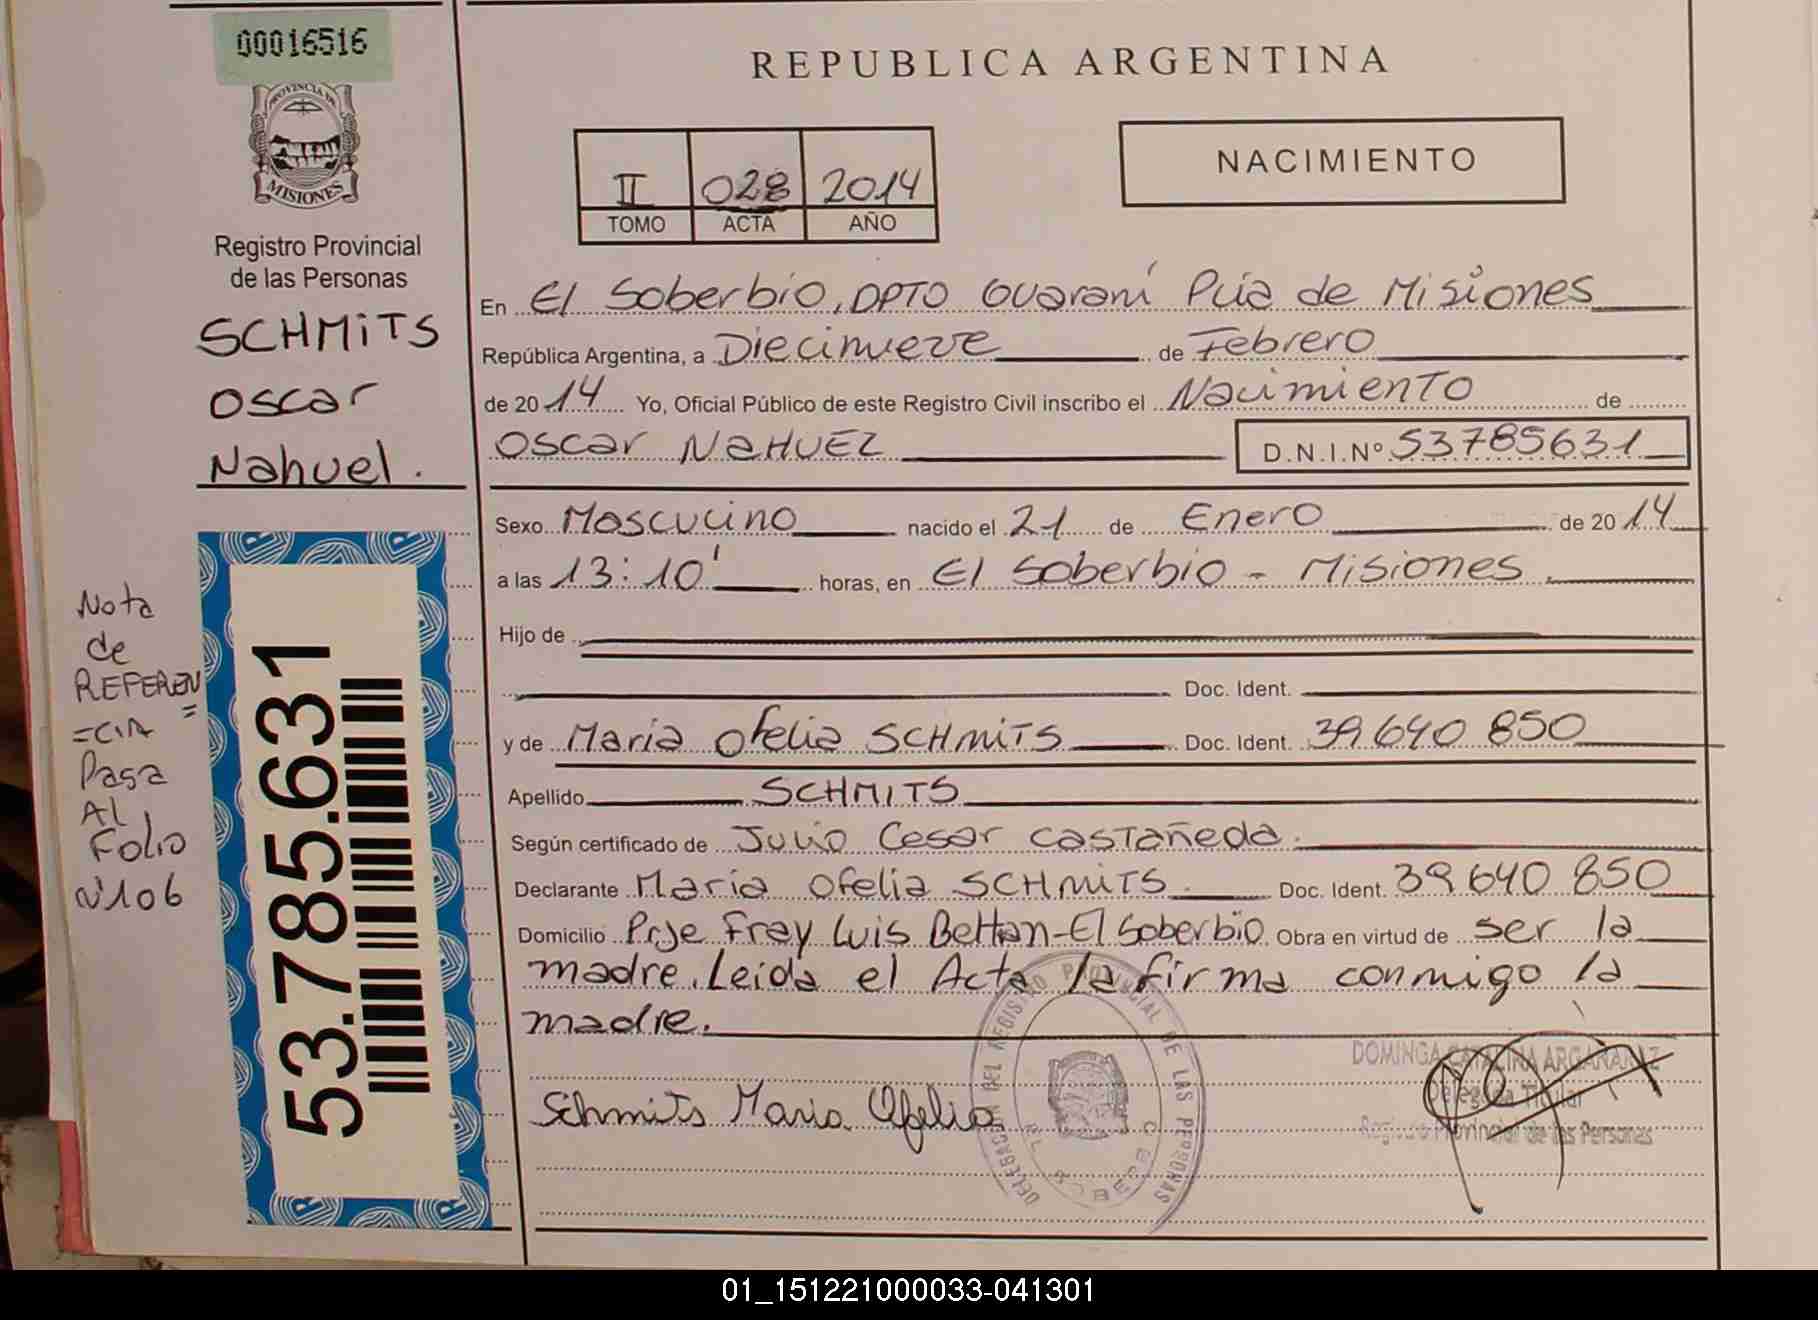 00016516
PROVINCIA DE
MISIONES
Registro Provincial
de las Personas
SCHMiTS
Oscar
Nahuel.
Nota
de
REFEREN
=CIA =
Pasa
Al
Folio
N°106
53.785.631
REPUBLICA ARGENTINA
II 028 2014
TOMO ACTA AÑO
NACIMIENTO
En El Soberbio, DPTO Guaraní Pcia de Misiones
República Argentina, a Diecinueve de Febrero
de 2014 Yo, Oficial Público de este Registro Civil inscribo el Nacimiento de
OSCAR NAHUEL D.N.I.Nº 53785631
Sexo Mascucino nacido el 21 de Enero de 2014
a las 13:10' horas, en El Soberbio - Misiones.
Hijo de
Doc. Ident.
y de Maria Ofelia SCHMiTS Doc. Ident. 39 640 850
Apellido SCHMITS
Según certificado de Julio Cesar Castañeda.
Declarante Maria Ofelia SCHMiTS. Doc. Ident. 39 640 850
Domicilio Prje Fray Luis Beltran-El Soberbio Obra en virtud de ser la
madre. Leida el Acta la firma conmigo la
madre.
DELEGACION DEL REGISTRO PROVINCIAL DE LAS PERSONAS
EL SOBERBIO
Schmits Maria Ofelia
DOMINGA CATALINA ARGAÑARAZ
Delegada Titular
Registro Provincial de las Personas
01_151221000033-041301